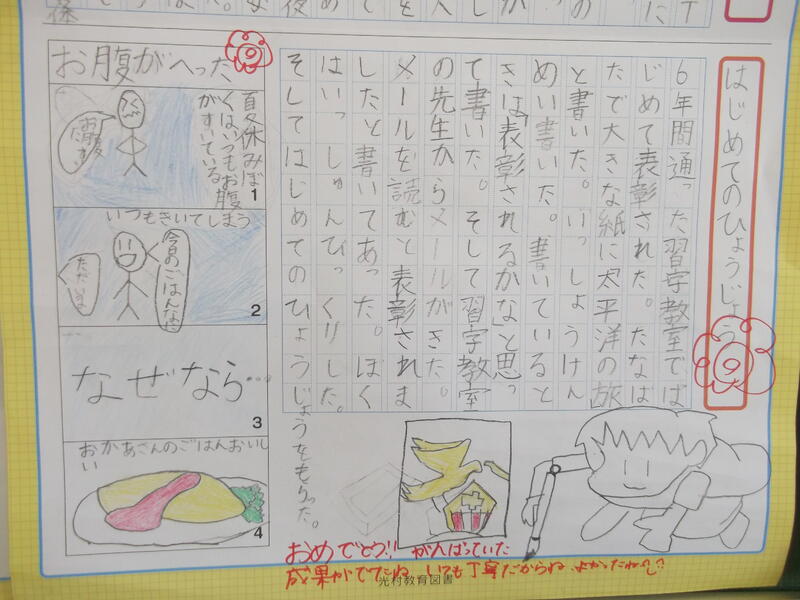 はじめてのひょうじょう
6年間通った習字教室では
じめて表彰された。たなば
たで大きな紙に太平洋の旅
と書いた。いっしょうけん
めい書いた。書いていると
きは「表彰されるかな」と思っ
て書いた。そして習字教室
の先生からメールがきた。
メールを読むと表彰されま
したと書いてあった。ぼく
はいっしゅんびっくりした。
そしてはじめてのひょうじょうをもらった。
お腹がへった
夏休みぼ
くはいつもお腹
がすいている
お腹
1
いつもきいてしまう
今日のごはんなに
ただいま
2
なぜなら…
3
おかあさんのごはんおいし
い
4
おめでとう!! がんばっていた
成果がでたね いつも丁寧だからね。よかったね
光村教育図書